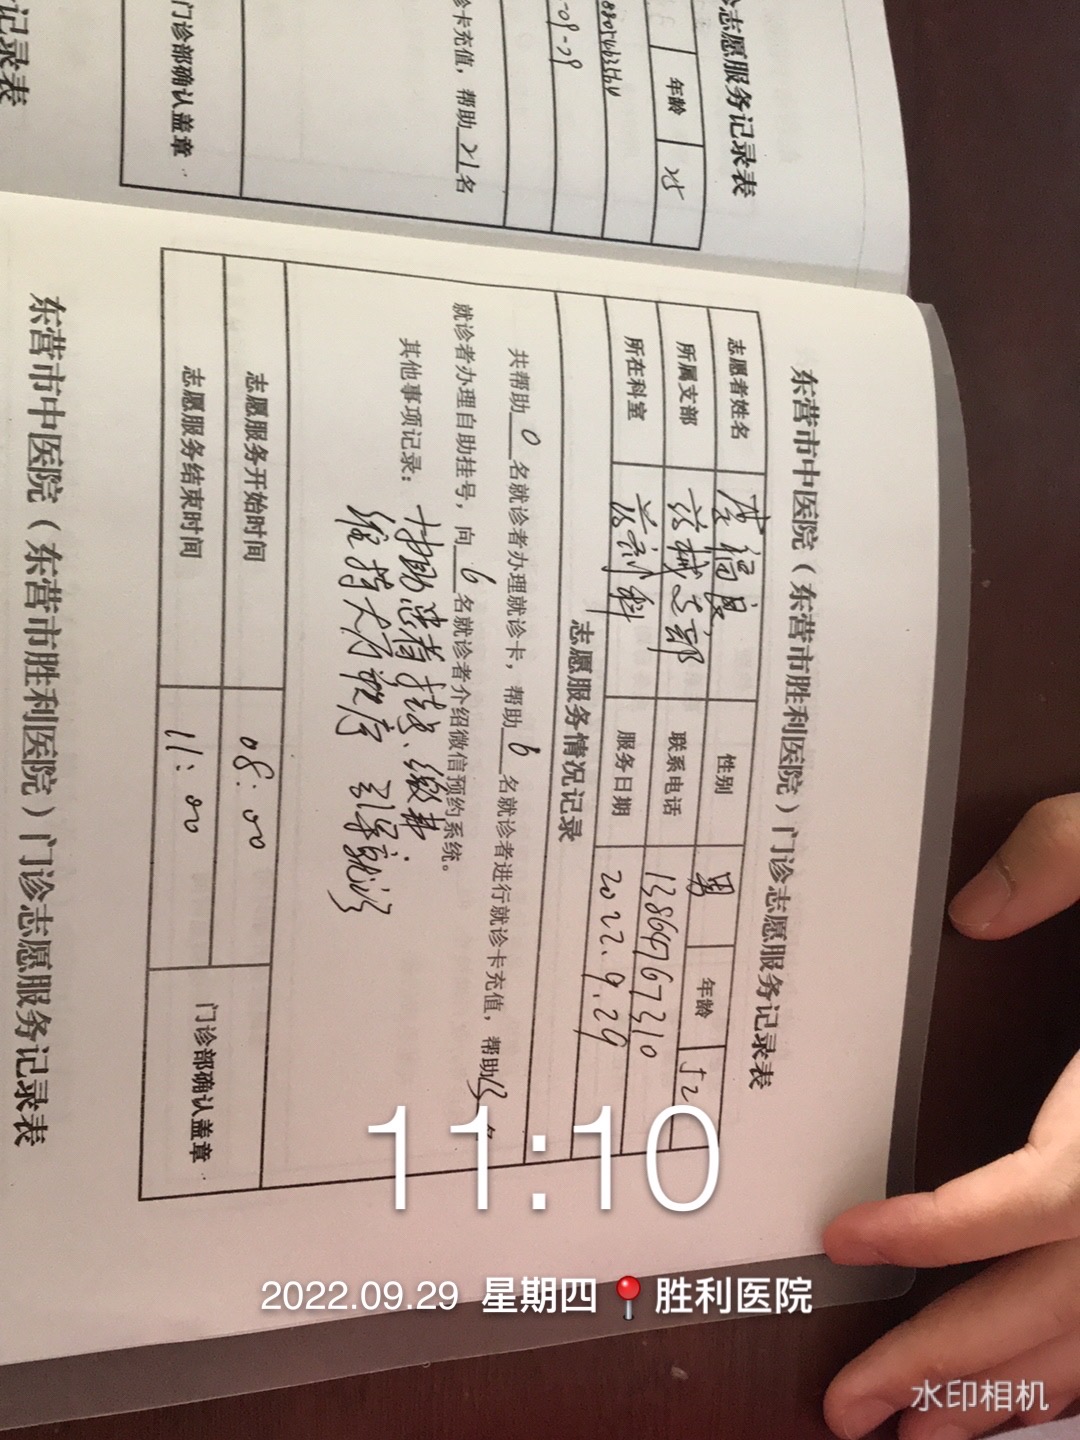 诊志愿服务记录表
年龄
25
诊卡充值，帮助21名
门诊部确认盖章
记录表
东营市中医院（东营市胜利医院）门诊志愿服务记录表
志愿者姓名
性别 男 年龄 52
所属支部
支部
联系电话 13864767310
所在科室
科
服务日期 2022.9.29
志愿服务情况记录
共帮助0名就诊者办理就诊卡，帮助6名就诊者进行就诊卡充值，帮助13名
就诊者办理自助挂号，向6名就诊者介绍微信预约系统。
其他事项记录：
帮助患者挂号、缴费
维持大厅秩序 引导就诊
志愿服务开始时间 08:00
志愿服务结束时间 11:00
门诊部确认盖章
东营市中医院（东营市胜利医院）门诊志愿服务记录表
11:10
2022.09.29 星期四 胜利医院
水印相机